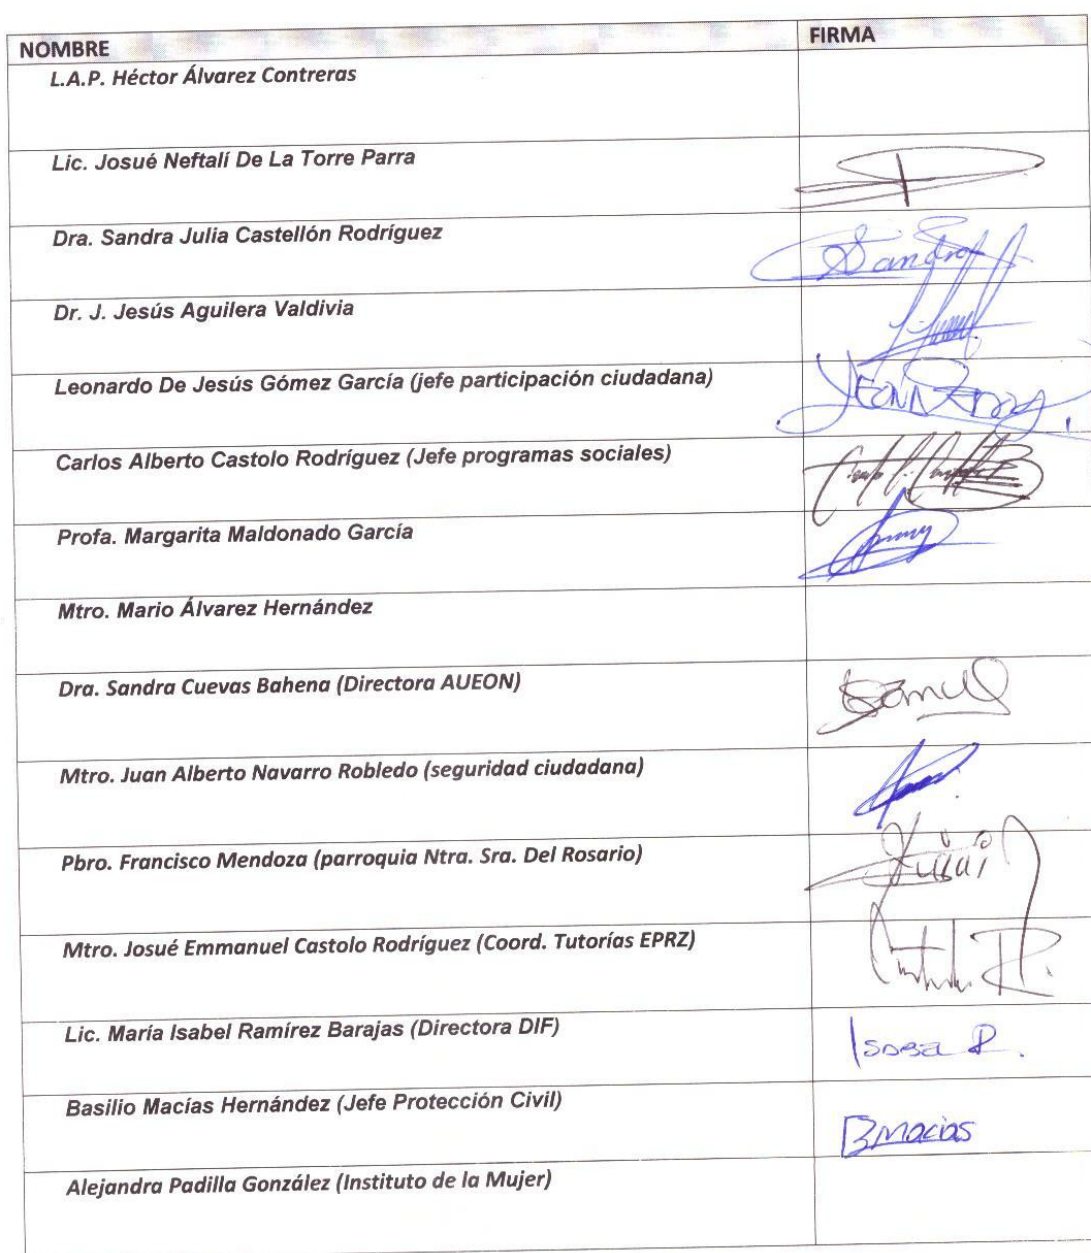 NOMBRE FIRMA
L.A.P. Héctor Álvarez Contreras
Lic. Josué Neftalí De La Torre Parra
Dra. Sandra Julia Castellón Rodríguez
Sandra
Dr. J. Jesús Aguilera Valdivia
Leonardo De Jesús Gómez García (jefe participación ciudadana)
Carlos Alberto Castolo Rodríguez (Jefe programas sociales)
Profa. Margarita Maldonado García
Mtro. Mario Álvarez Hernández
Dra. Sandra Cuevas Bahena (Directora AUEON)
Mtro. Juan Alberto Navarro Robledo (seguridad ciudadana)
Pbro. Francisco Mendoza (parroquia Ntra. Sra. Del Rosario)
Mtro. Josué Emmanuel Castolo Rodríguez (Coord. Tutorías EPRZ)
Lic. María Isabel Ramírez Barajas (Directora DIF)
Basilio Macías Hernández (Jefe Protección Civil)
BMacias
Alejandra Padilla González (Instituto de la Mujer)